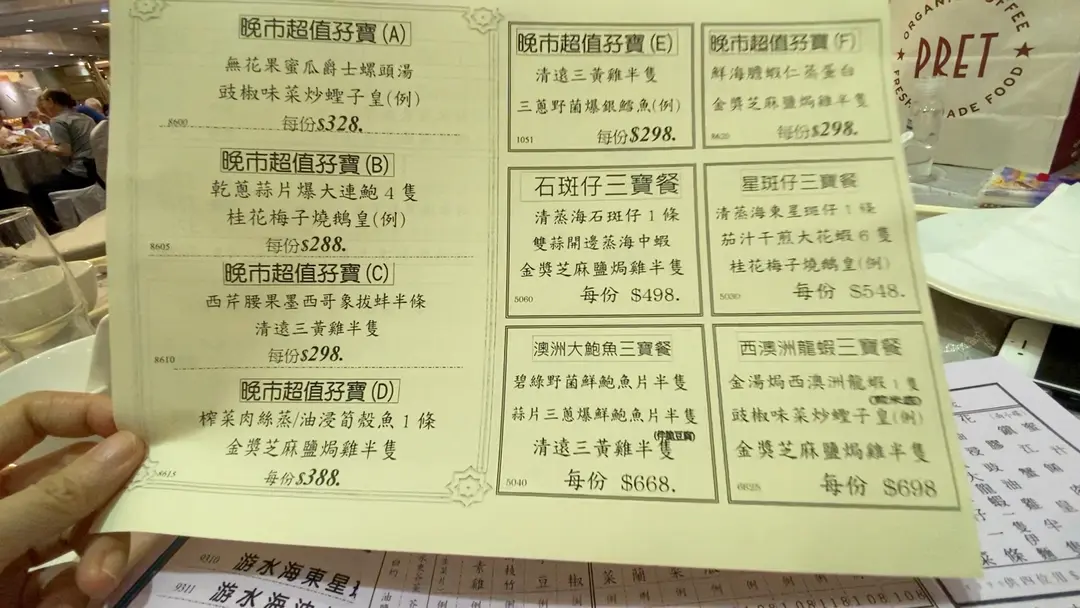 晚市超值孖寶(A)
無花果蜜瓜爵士螺頭湯
豉椒味菜炒蟶子皇(例)
8600 每份$328.
晚市超值孖寶(B)
乾蔥蒜片爆大連鮑4隻
桂花梅子燒鵝皇(例)
8605 每份$288.
晚市超值孖寶(C)
西芹腰果墨西哥象拔蚌半條
清遠三黃雞半隻
8610 每份$298.
晚市超值孖寶(D)
榨菜肉絲蒸/油浸筍殼魚1條
金獎芝麻鹽焗雞半隻
8615 每份$388.
晚市超值孖寶(E)
清遠三黃雞半隻
三蔥野菌爆銀鱈魚(例)
1051 每份$298.
晚市超值孖寶(F)
鮮海膽蝦仁蒸蛋白
金獎芝麻鹽焗雞半隻
8620 每份$298.
石斑仔三寶餐
清蒸海石斑仔1條
雙蒜開邊蒸海中蝦
金獎芝麻鹽焗雞半隻
5060 每份 $498.
星斑仔三寶餐
清蒸海東星斑仔1條
茄汁干煎大花蝦6隻
桂花梅子燒鵝皇(例)
5030 每份 $548.
澳洲大鮑魚三寶餐
碧綠野菌鮮鮑魚片半隻
蒜片三蔥爆鮮鮑魚片半隻
(伴脆豆腐)
清遠三黃雞半隻
5040 每份 $668.
西澳洲龍蝦三寶餐
金湯焗西澳洲龍蝦1隻
(煎米底)
豉椒味菜炒蟶子皇(例)
金獎芝麻鹽焗雞半隻
6825 每份 $698
ORGANIC COFFEE
PRET
FRESH
MADE FOOD
9310 游水海東星
9311 游水海